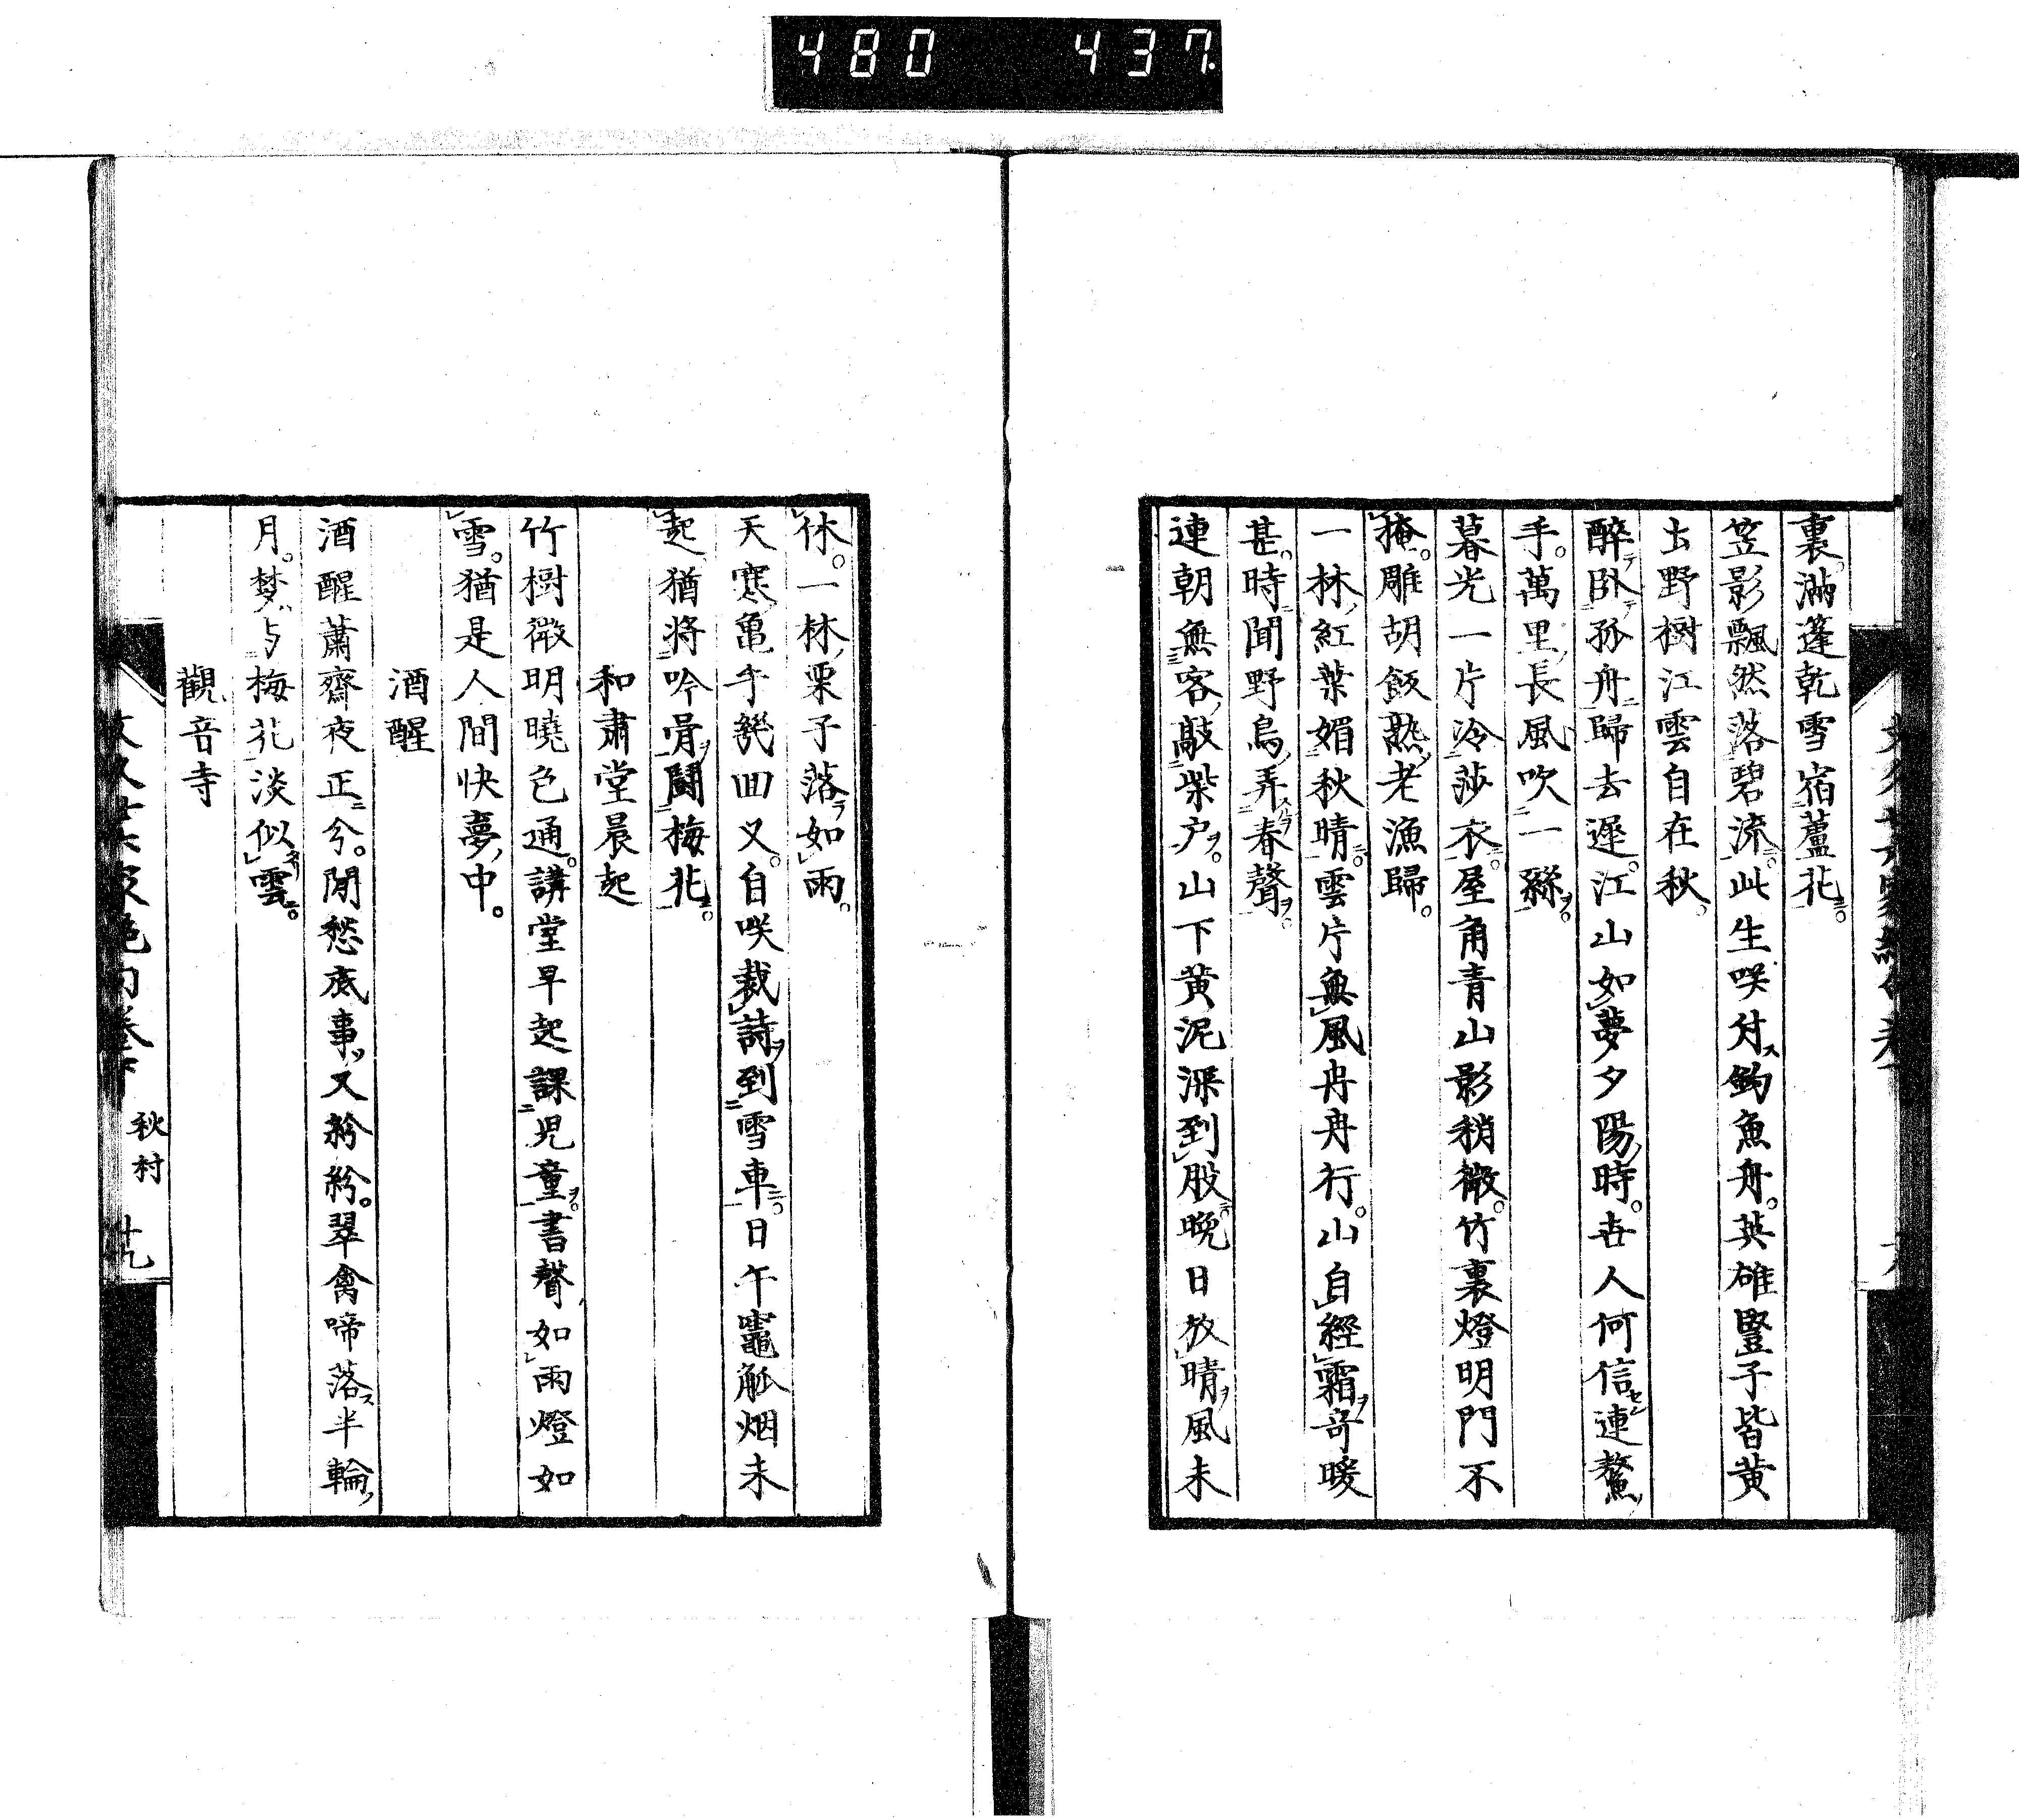 480 437.
裏。滿篷乾雪宿蘆花。
笠影飄然落碧流。此生咲付釣魚舟。英雄豎子皆黄
土野樹江雲自在秋。
醉卧孤舟歸去遲。江山如夢夕陽時。世人何信連鰲
手。萬里長風吹一絲。
暮光一片冷莎衣。屋角青山影稍微。竹裏燈明門不
掩。雕胡飯熟老漁歸。
一林紅葉媚秋晴。雲片無風冉冉行。山自經霜奇暖
甚。時聞野鳥弄春聲。
連朝無客敲柴戸。山下黄泥深到股。晩日放晴風未
休。一林栗子落如雨。
天寒亀手幾回叉。自咲裁詩到雪車。日午竈觚烟未
起。猶将吟骨鬪梅花。
和肅堂晨起
竹樹微明曉色通。講堂早起課児童。書聲如雨燈如
雪。猶是人間快夢中。
酒醒
酒醒蕭齋夜正分。閒愁底事又紛紛。翠禽啼落半輪
月。梦与梅花淡似雲。
觀音寺
秋村 十九